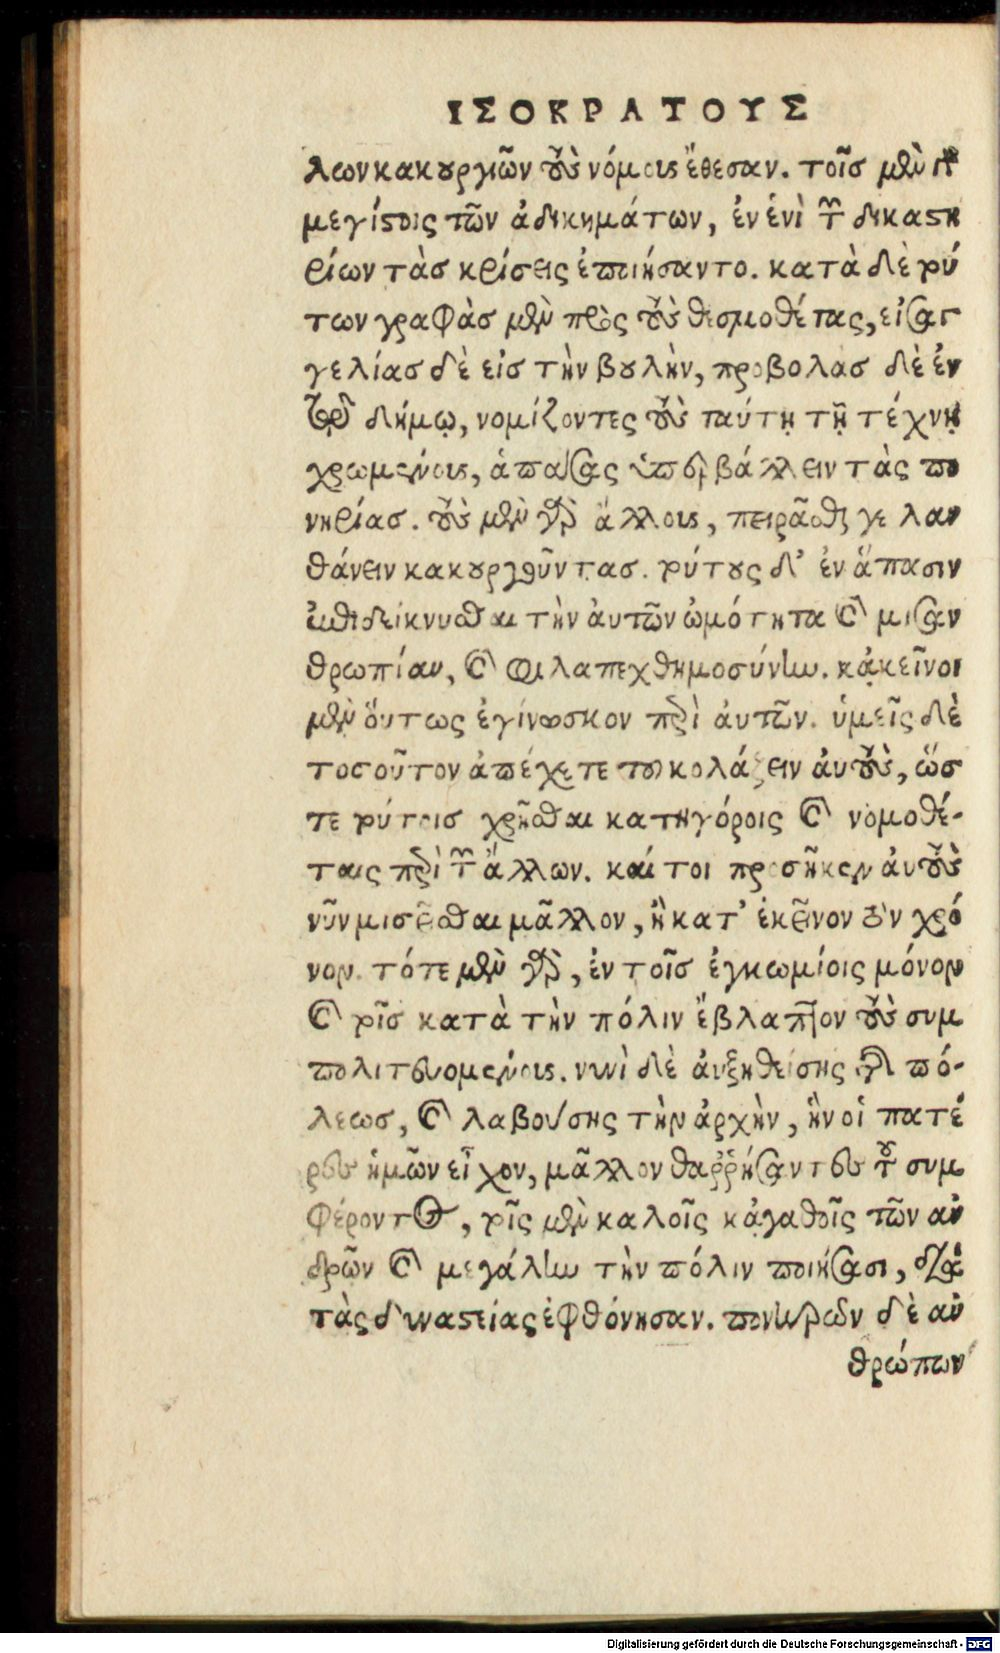 ΙΣΟΚΡΑΤΟΥΣ
λων κακουργιῶν τοὺς νόμους ἔθεσαν. τοῖς μὲν γὰρ
μεγίστοις τῶν ἀδικημάτων, ἐν ἑνὶ τῶν δικαστη
ρίων τὰς κρίσεις ἐποιήσαντο. κατὰ δὲ τού
των γραφὰς μὲν πρὸς τοὺς θεσμοθέτας, εἰσαγ
γελίας δὲ εἰς τὴν βουλὴν, προβολὰς δὲ ἐν
τῷ δήμῳ, νομίζοντες τοὺς ταύτῃ τῇ τέχνῃ
χρωμένους, ἁπάσας ὑπερβάλλειν τὰς πο
νηρίας. τοὺς μὲν γὰρ ἄλλους, πειρᾶσθαί γε λαν
θάνειν κακουργοῦντας. τούτους δ' ἐν ἅπασιν
ἐπιδείκνυσθαι τὴν αὐτῶν ὠμότητα καὶ μισαν
θρωπίαν, καὶ φιλαπεχθημοσύνην. κἀκεῖνοι
μὲν οὕτως ἐγίνωσκον περὶ αὐτῶν. ὑμεῖς δὲ
τοσοῦτον ἀπέχετε τοῦ κολάζειν αὐτοὺς, ὥσ
τε τούτοις χρῆσθαι κατηγόροις καὶ νομοθέ-
ταις περὶ τῶν ἄλλων. καί τοι προσῆκεν αὐτοὺς
νῦν μισεῖσθαι μᾶλλον, ἢ κατ' ἐκεῖνον τὸν χρό
νον. τότε μὲν γὰρ, ἐν τοῖς ἐγκωμίοις μόνον
καὶ τοῖς κατὰ τὴν πόλιν ἔβλαπτον τοὺς συμ
πολιτευομένους. νυνὶ δὲ αὐξηθείσης τῆς πό-
λεως, καὶ λαβούσης τὴν ἀρχὴν, ἣν οἱ πατέ
ρες ἡμῶν εἶχον, μᾶλλον θαῤῥήσαντες τοῦ συμ
φέροντος, τοῖς μὲν καλοῖς κἀγαθοῖς τῶν ἀν
δρῶν καὶ μεγάλην τὴν πόλιν ποιήσασι, διὰ
τὰς δυναστείας ἐφθόνησαν. πονηρῶν δὲ ἀν
θρώπων
Digitalisierung gefördert durch die Deutsche Forschungsgemeinschaft - DFG